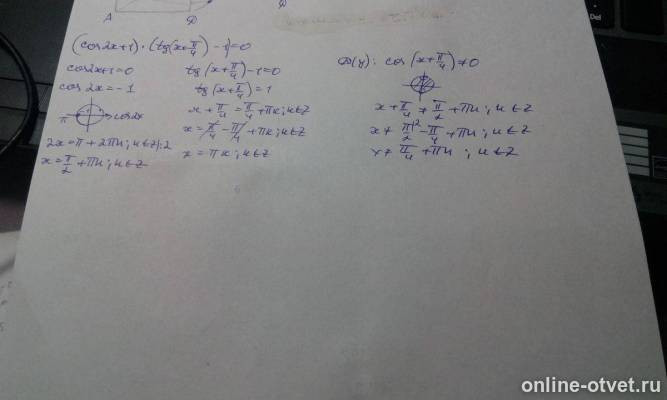 A D D
(cos2x+1)·(tg(x+π/4)-1)=0
cos2x+1=0
cos2x=-1
π cos2x
2x=π+2πn; n∈Z|:2
x=π/2+πn; n∈Z
tg(x+π/4)-1=0
tg(x+π/4)=1
x+π/4=π/4+πk; k∈Z
x=π/4-π/4+πk; k∈Z
x=πk; k∈Z
D(y): cos(x+π/4)≠0
x+π/4≠π/2+πn; n∈Z
x≠π/2|²-π/4+πn; n∈Z
x≠π/4+πn; n∈Z
Del
online-otvet.ru